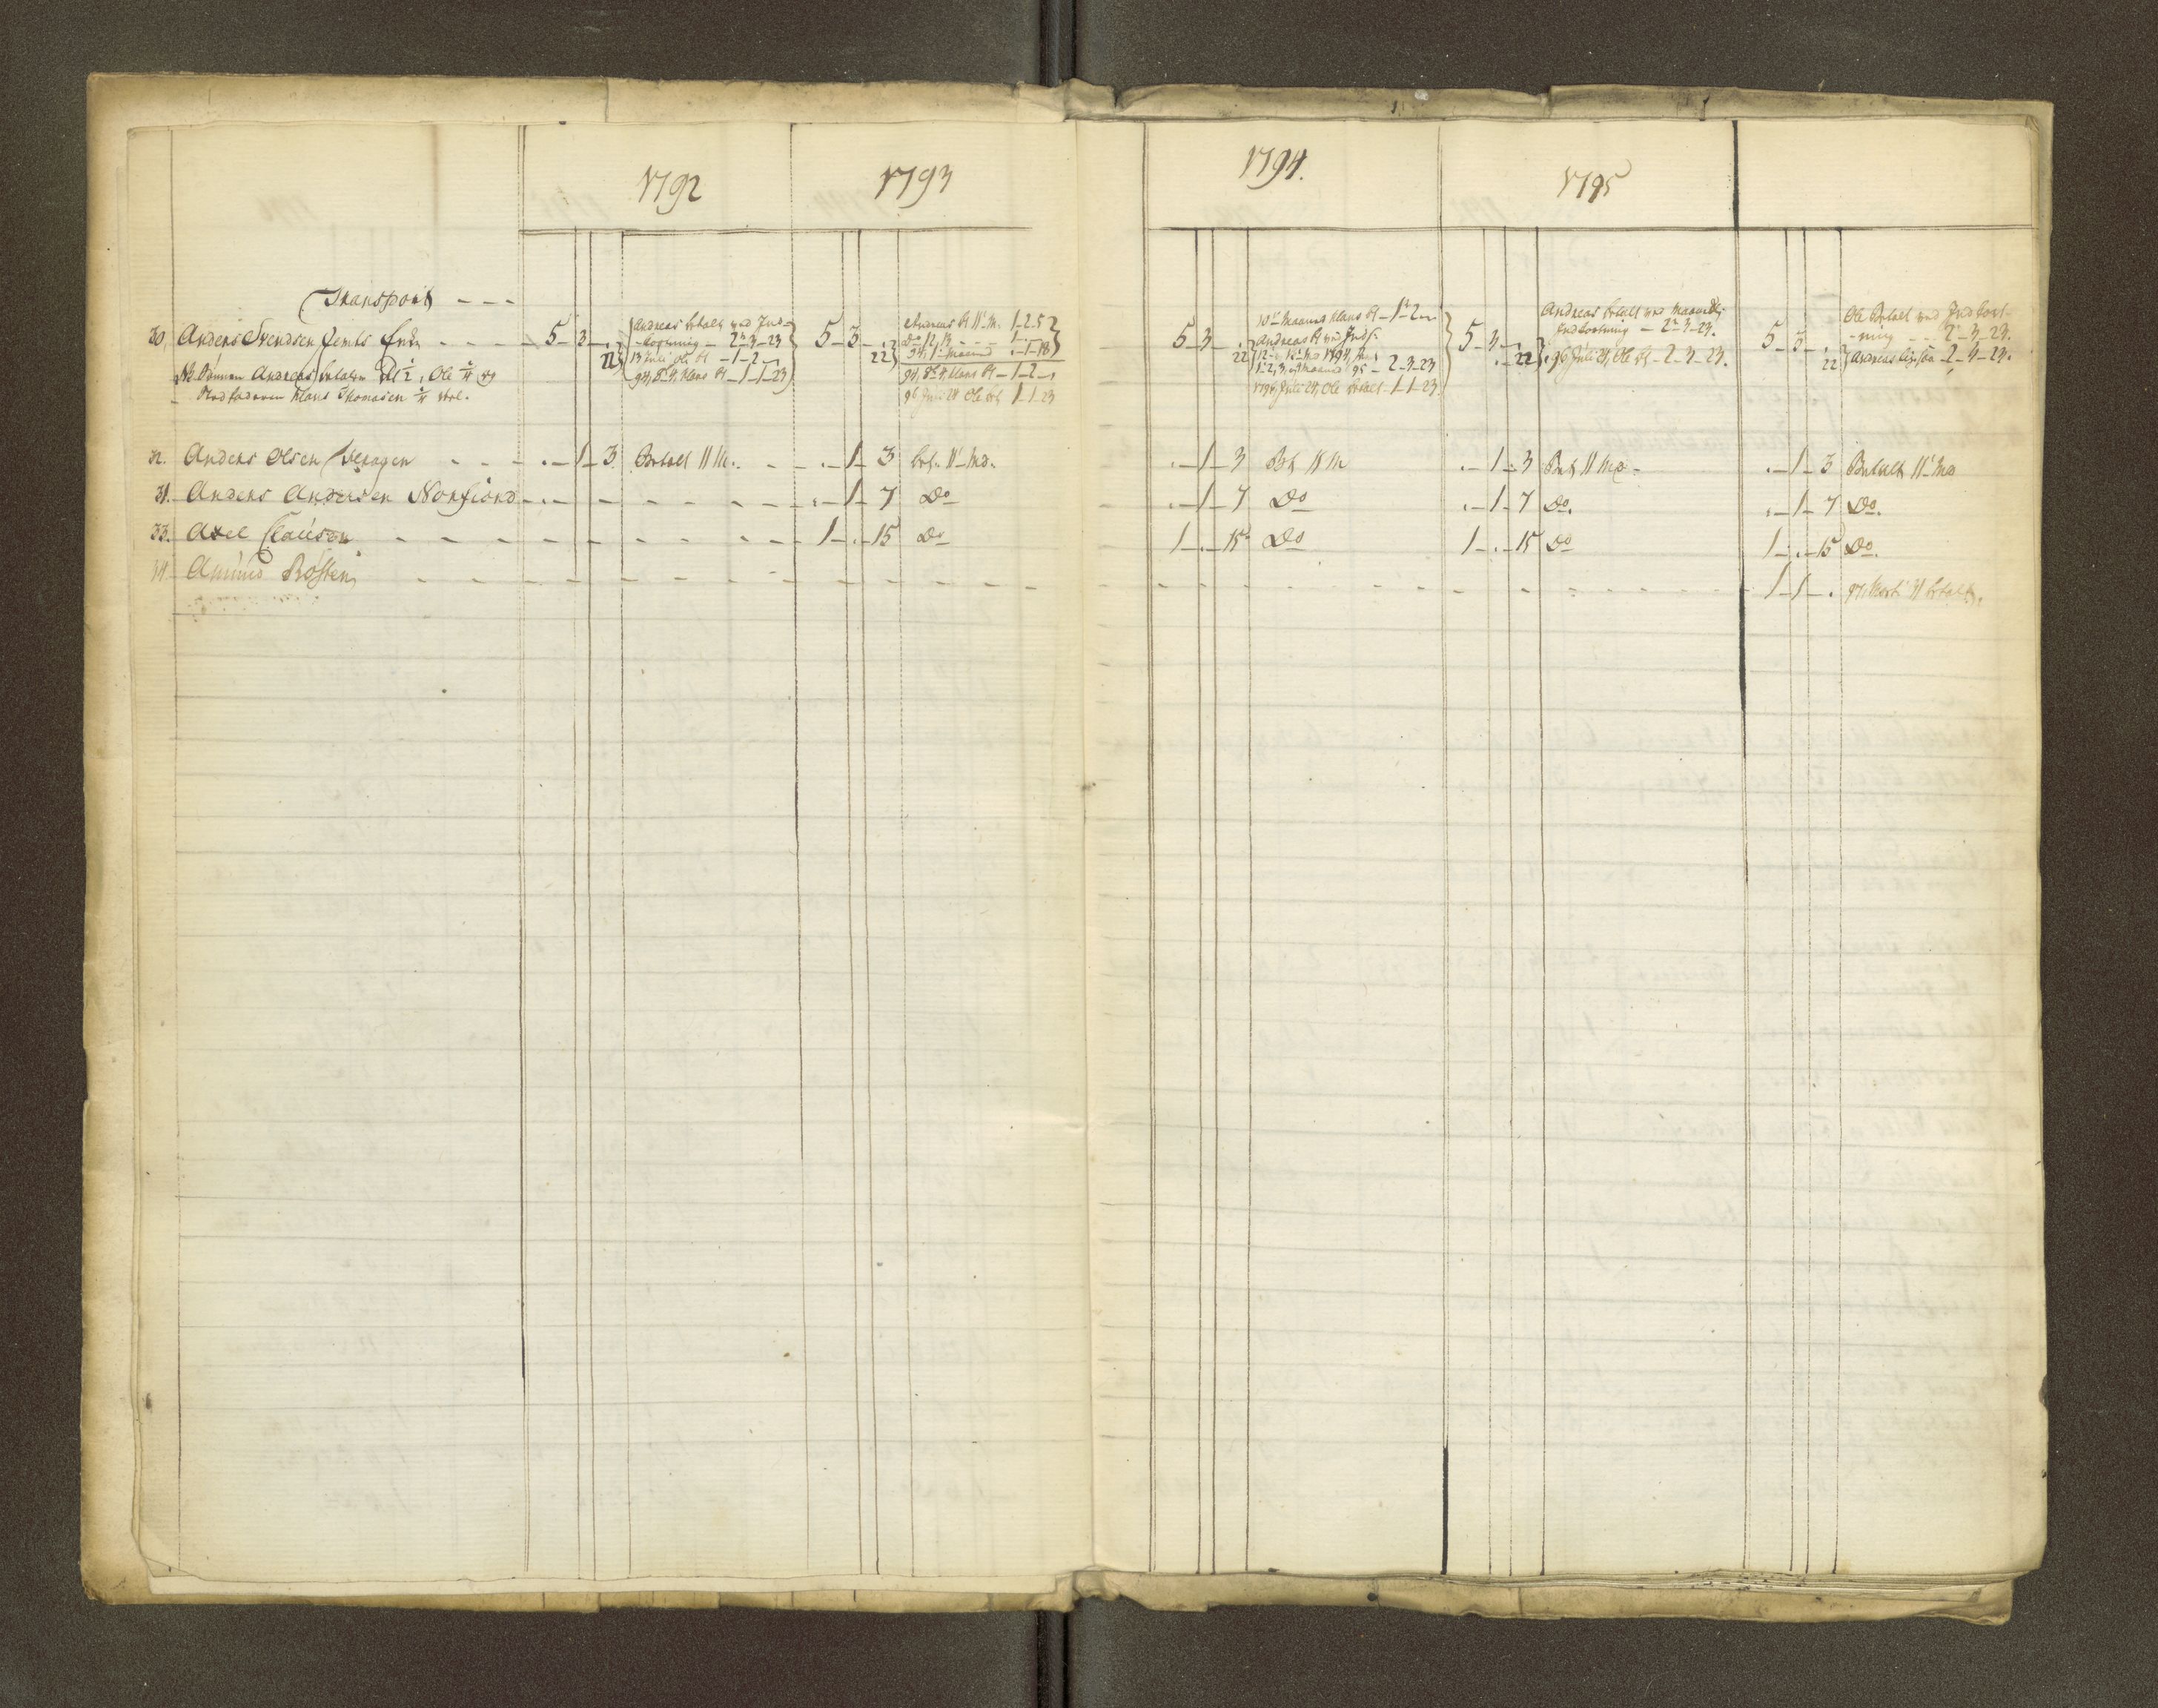 1792
1793
1794.
1795
Transport - - -
30. Anders Svendsen Jembs Enke - - - - 5-3-.
22
Andreas betalt ved Ind-
-kortning - 2-3-23
13 Juli Ole bt - 1-2-,
94, 8-4, Klaus bt - 1-1-23
5-3-.
22
Andreas bt 11 M. 1-2-5
Do 12, 13 - - - 1
94, 1 Maaned .-1-18
94, 8-4, Klaus bt - 1-2-,
96 Juli 28 Ole bet 1-1-23
5-3-.
22
10 Maaned Klaus bt - 1-2-
Andreas bt ved Indk.
1-2, 3, 4 Maaned 95 - 2-3-23
1796, Juli 28, Ole betalt - 1-1-23.
5-3-.
.-22
Andreas betalt ved Maanedl:
Indkortning - 2-3-23.
96 Juli 28, Ole bt - 2-3-23.
5-3-.
22
Ole Betalt ved Indkort-
-ning - - 2-3-23.
Andreas - 2-3-23.
Sønnen Andreas betaler 1/2, Ole 1/4 og
Stedfaderen Klaus Thomasen 1/4 deel.
32. Anders Olsen - - - .-1-3 Betalt 11 M. - - .-1-3 bet. 11 Md. .-1-3 Bt 11 M .-1-3 Bet 11 Md - .-1-3 Betalt 11 Md
31. Anders Andersen Norfiord - - - - - - - .-1-7 Do .-1-7 Do .-1-7 Do. .-1-7 Do.
33. Axel Clausen - - - - - - - - - 1-.-15 Do 1-.-15 Do 1-.-15 Do 1-.-15 Do.
34 Amund Røsten - - - - - - - - - - - - - - - - - - - - - 1-1-. 97, betalt.